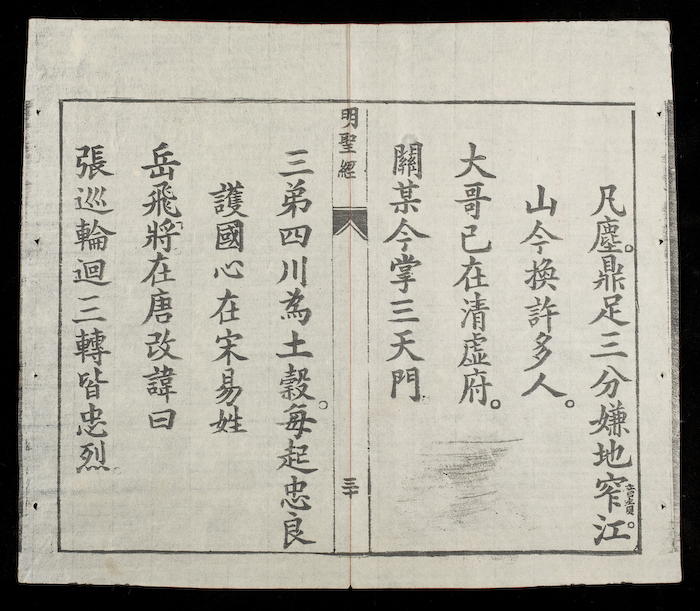 凡塵。鼎足三分嫌地窄音責。江
山今換許多人。
大哥已在清虛府。
關某今掌三天門
明聖經
三十
三弟四川為土穀。每起忠良
護國心在宋易姓
岳飛將在唐改諱曰
張巡輪迴三轉皆忠烈